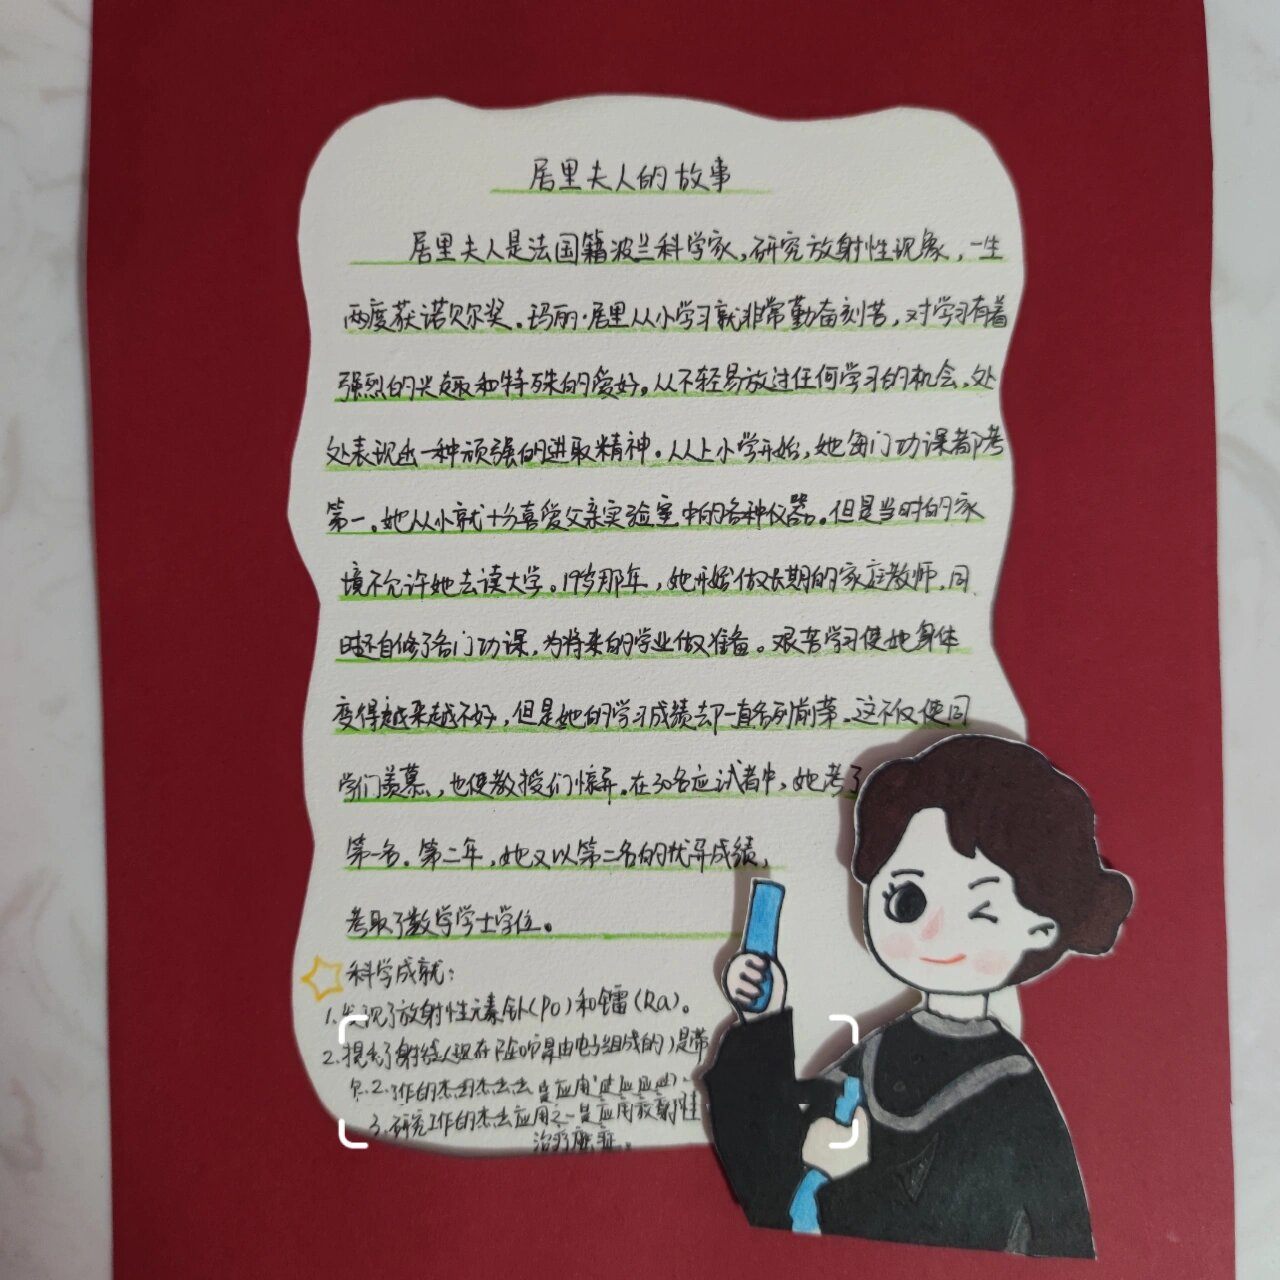 居里夫人的故事
居里夫人是法国籍波兰科学家,研究放射性现象,一生
两度获诺贝尔奖。玛丽·居里从小学习就非常勤奋刻苦,对学习有着
强烈的兴趣和特殊的爱好。从不轻易放过任何学习的机会,处
处表现出一种顽强的进取精神。从上小学开始,她每门功课都考
第一。她从小就十分喜爱父亲实验室中的各种仪器。但是当时的家
境不允许她去读大学。19岁那年,她开始做长期的家庭教师,同
时还自修了各门功课,为将来的学业做准备。艰苦学习使她身体
变得越来越不好,但是她的学习成绩却一直名列前茅。这不仅使同
学们羡慕,也使教授们惊异。在30名应试者中,她考了
第一名。第二年,她又以第二名的优异成绩,
考取了数学学士学位。
科学成就:
1.发现了放射性元素钋(Po)和镭(Ra)。
2.提出了射线(现在 是由电子组成的)是带
3.研究工作的杰出应用之一是应用放射性
治疗癌症。